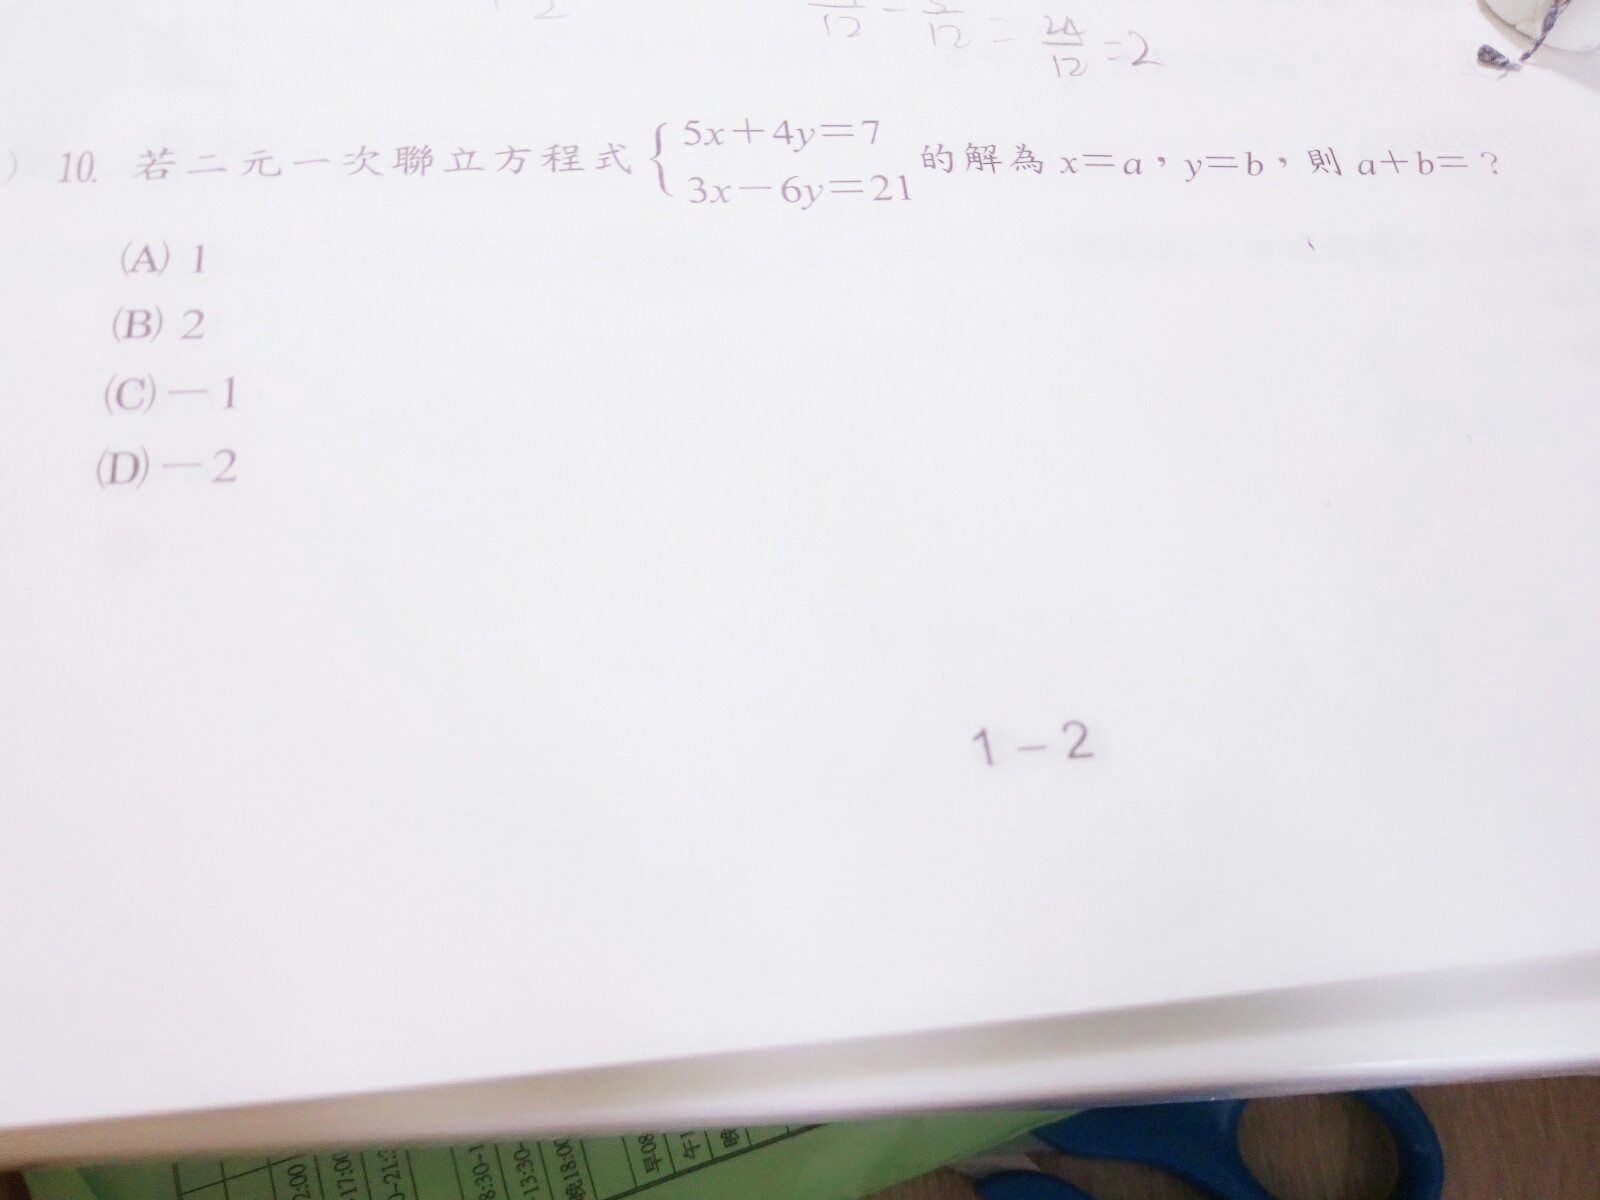 2
12 - 12 = 24/12 = 2
) 10. 若二元一次聯立方程式 { 5x+4y=7
3x-6y=21 的解為 x=a，y=b，則 a+b=？
(A) 1
(B) 2
(C) -1
(D) -2
1-2
2:00
-17:00
0-21:
8:30-1
13:30-
晚18:00
早08
午1
晚